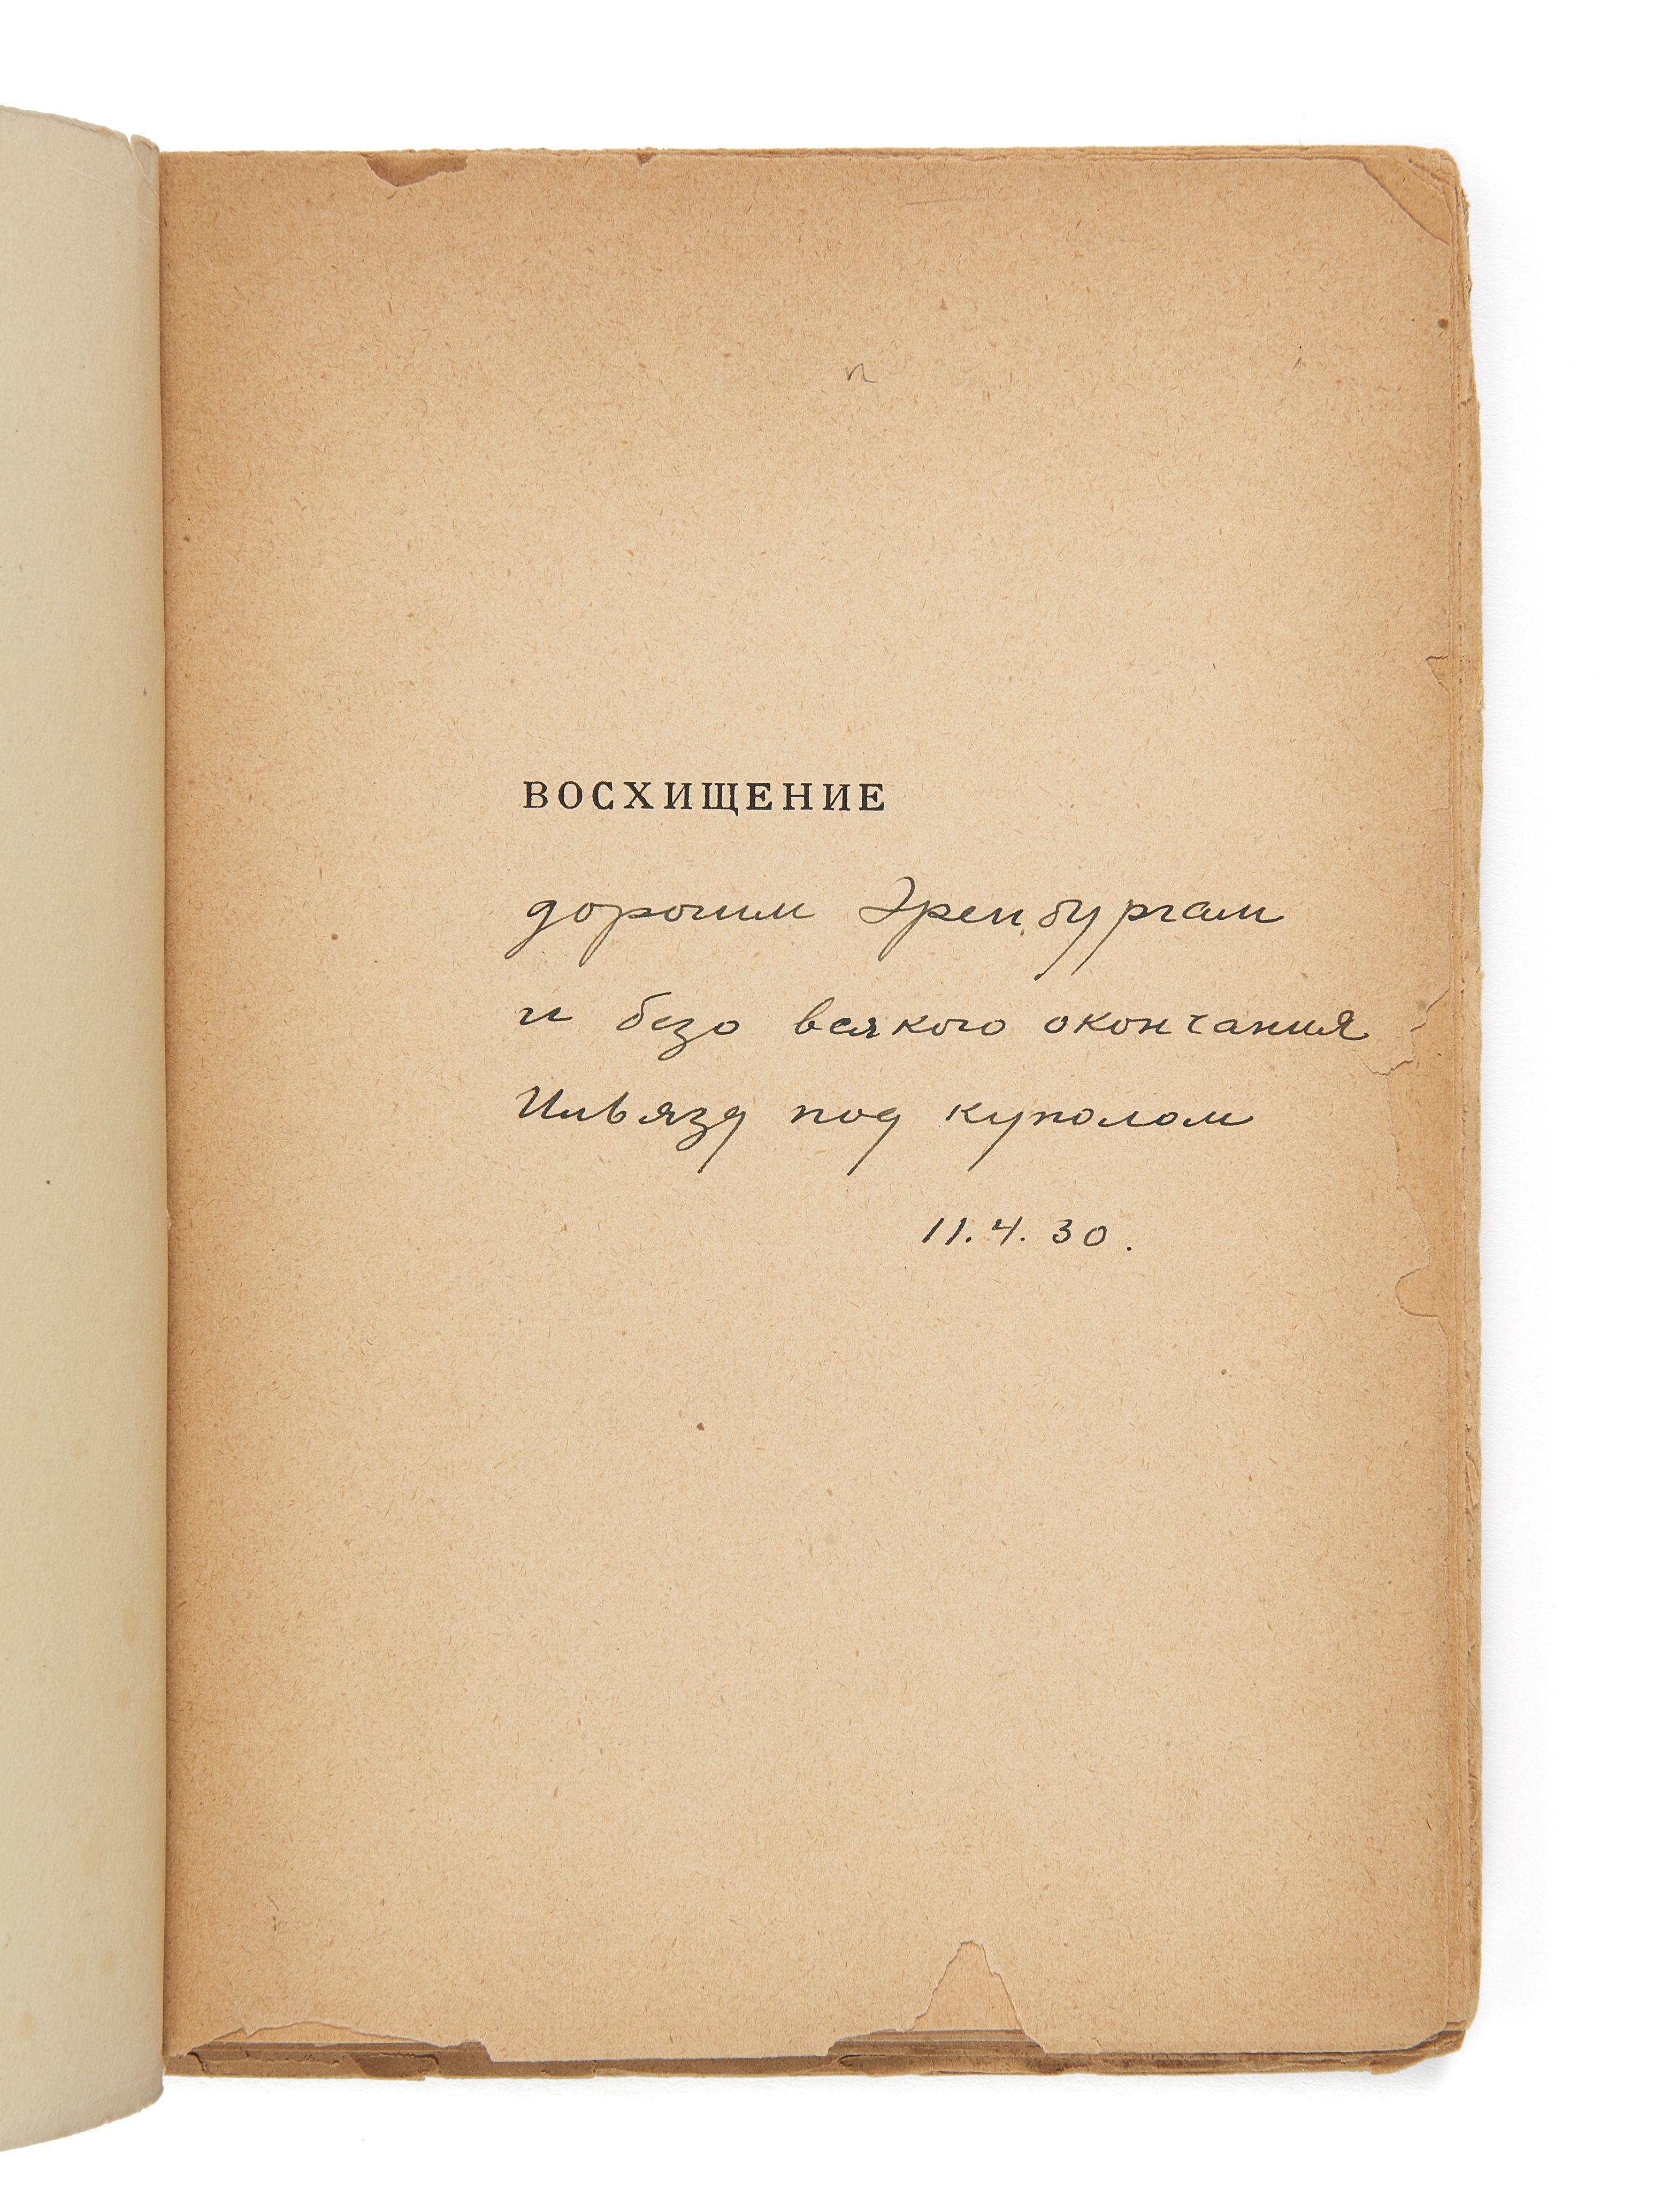 ВОСХИЩЕНИЕ
дорогим Эренбургам
и безо всякого окончания
Ильязд под куполом
11.4.30.